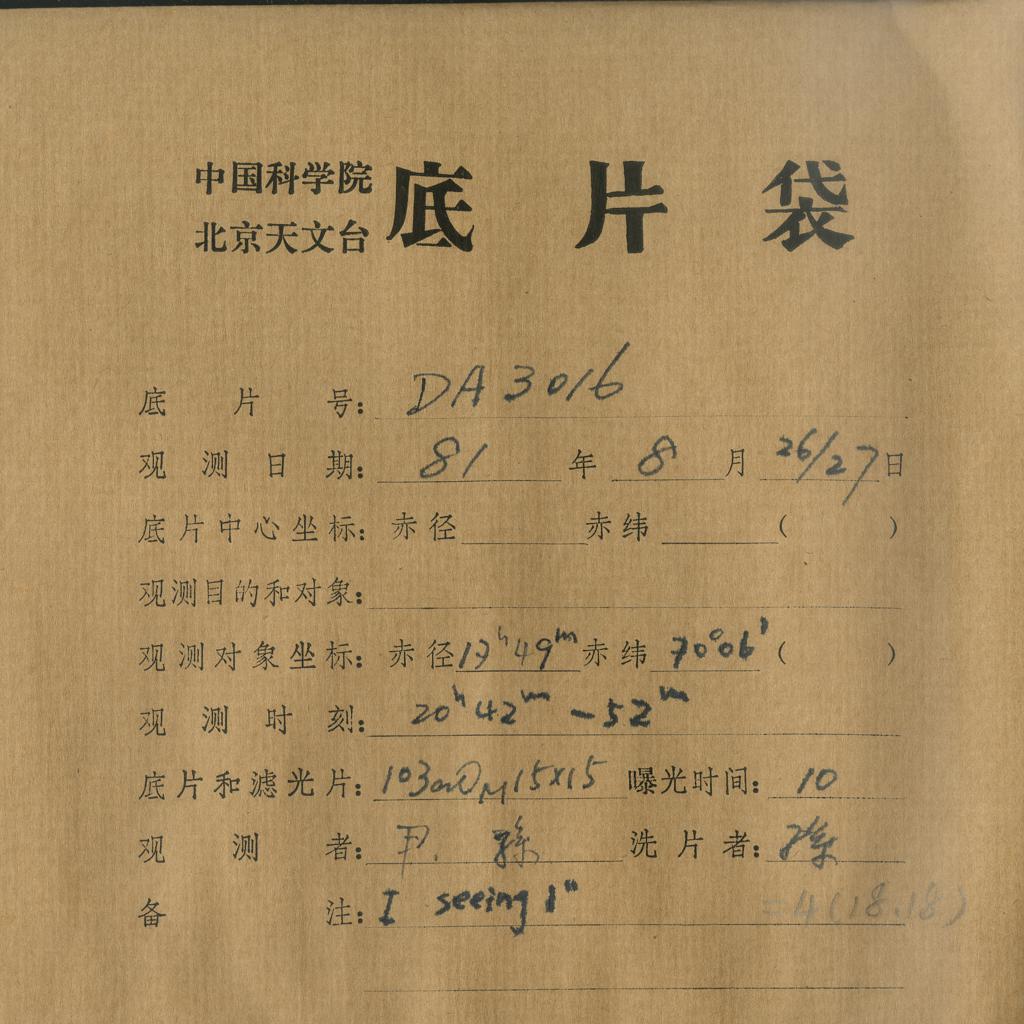 中国科学院
北京天文台 底片袋
底片号: DA3016
观测日期: 81年8月26/27日
底片中心坐标: 赤径 赤纬 ( )
观测目的和对象:
观测对象坐标: 赤径 17ʰ49ᵐ 赤纬 70°06′ ( )
观测时刻: 20ʰ42ᵐ–52ᵐ
底片和滤光片: 103aO 15×15 曝光时间: 10
观测者: 尹. 孫 洗片者: 孫
备注: I seeing 1" =4(18.18)